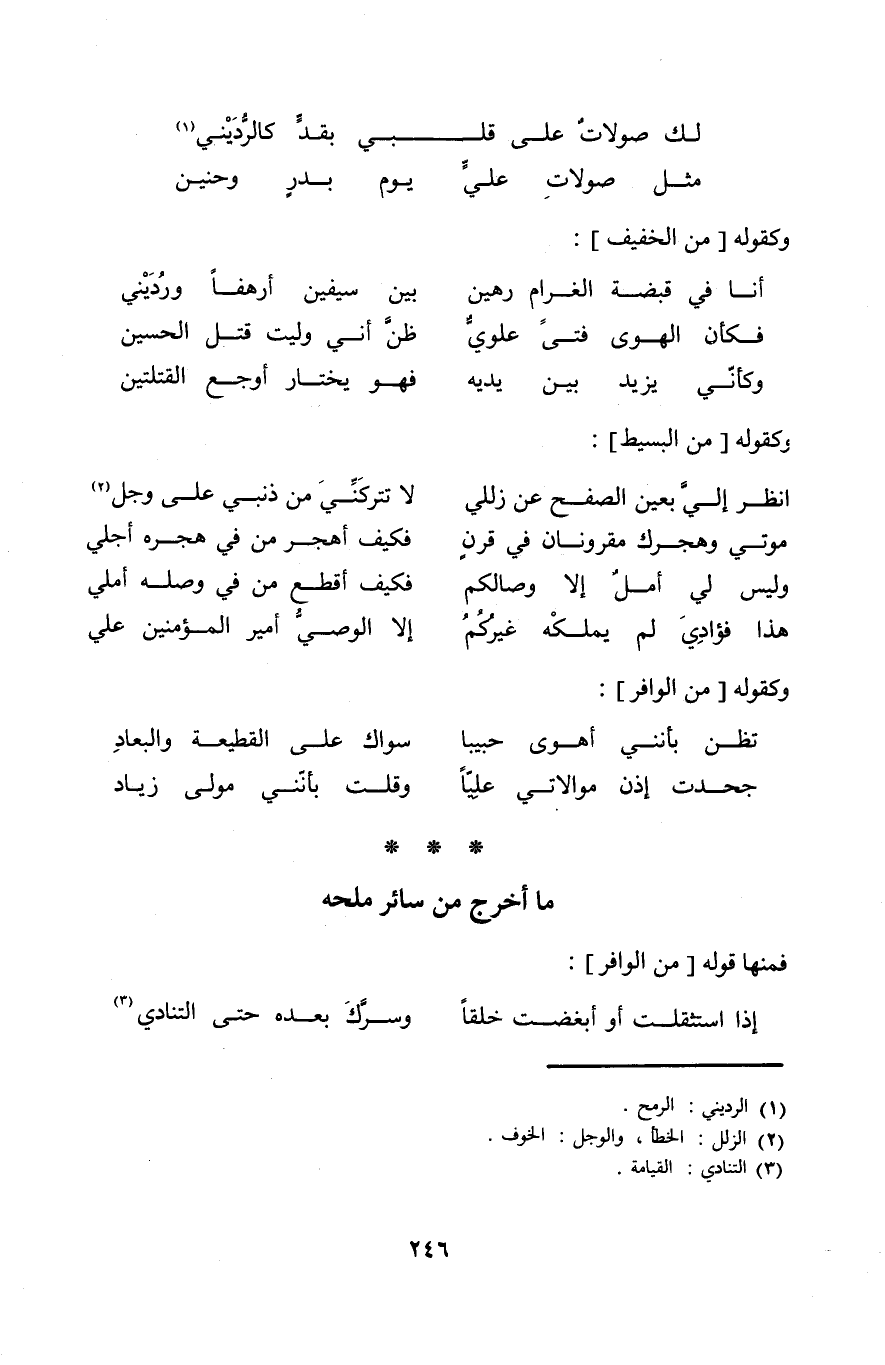 لك صولاتٌ على قلـبي بقدٍّ كالرُّدَيْني(١)
مثل صولاتِ عليٍّ يوم بدرٍ وحنين
وكقوله [ من الخفيف ] :
أنا في قبضة الغرام رهين بين سيفين أرهفاً ورُدَيْني
فكأن الهوى فتىً علويٌّ ظنَّ أني وليت قتل الحسين
وكأنّي يزيد بين يديه فهو يختار أوجع القتلتين
وكقوله [ من البسيط ] :
انظر إليَّ بعين الصفح عن زللي لا تتركَنِّيَ من ذنبي على وجل(٢)
موتي وهجرك مقرونان في قرنٍ فكيف أهجر من في هجره أجلي
وليس لي أملٌ إلا وصالكم فكيف أقطع من في وصله أملي
هذا فؤادِيَ لم يملكْه غيرُكُمُ إلا الوصيُّ أمير المؤمنين علي
وكقوله [ من الوافر ] :
تظن بأنني أهوى حبيبا سواك على القطيعة والبعادِ
جحدت إذن موالاتي عليّاً وقلت بأنّني مولى زياد
* * *
ما أخرج من سائر ملحه
فمنها قوله [ من الوافر ] :
إذا استثقلت أو أبغضت خلقاً وسرَّكَ بعده حتى التنادي(٣)
(١) الرديني : الرمح .
(٢) الزلل : الخطأ ، والوجل : الخوف .
(٣) التنادي : القيامة .
٢٤٦